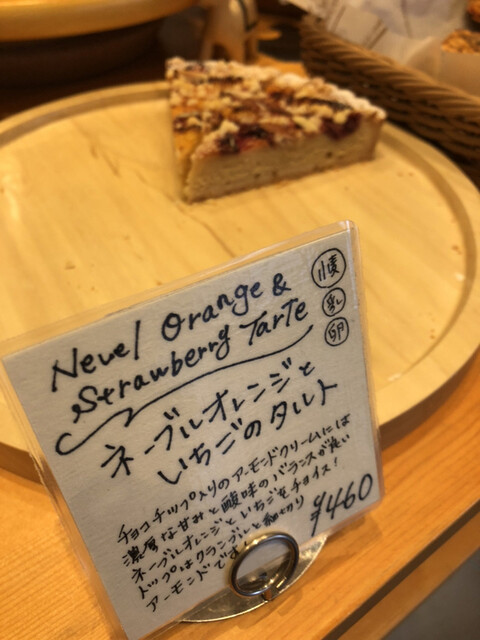 Nevel Orange &
Strawberry Tarte
小麦
乳
卵
ネーブルオレンジと
いちごのタルト
チョコチップ入りのアーモンドクリームには
濃厚な甘みと酸味のバランスが良い
ネーブルオレンジといちごをチョイス!
トップはクランブルと細切り
アーモンドです!
¥460